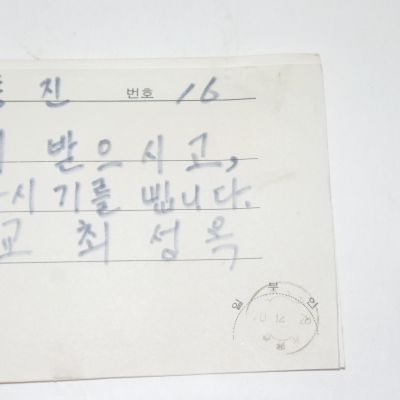 진 번호 16
받으시고,
시기를 빕니다.
교 최성옥
일부인